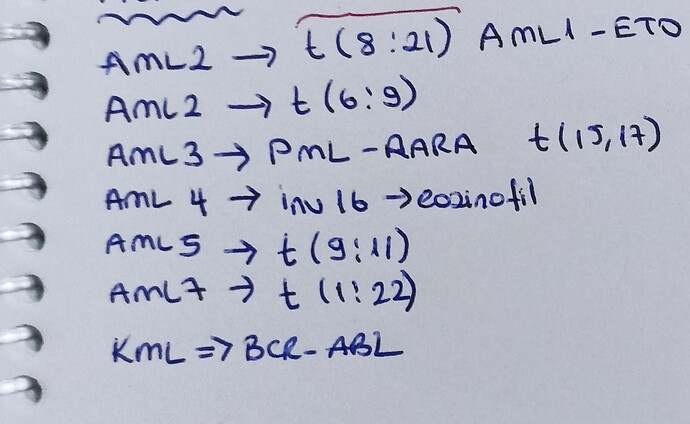 AML2 → t(8:21) AML1-ETO
AML2 → t(6:9)
AML3 → PML-RARA t(15,17)
AML 4 → inv 16 → eozinofil
AML5 → t(9:11)
AML7 → t (1:22)
KML => BCR-ABL